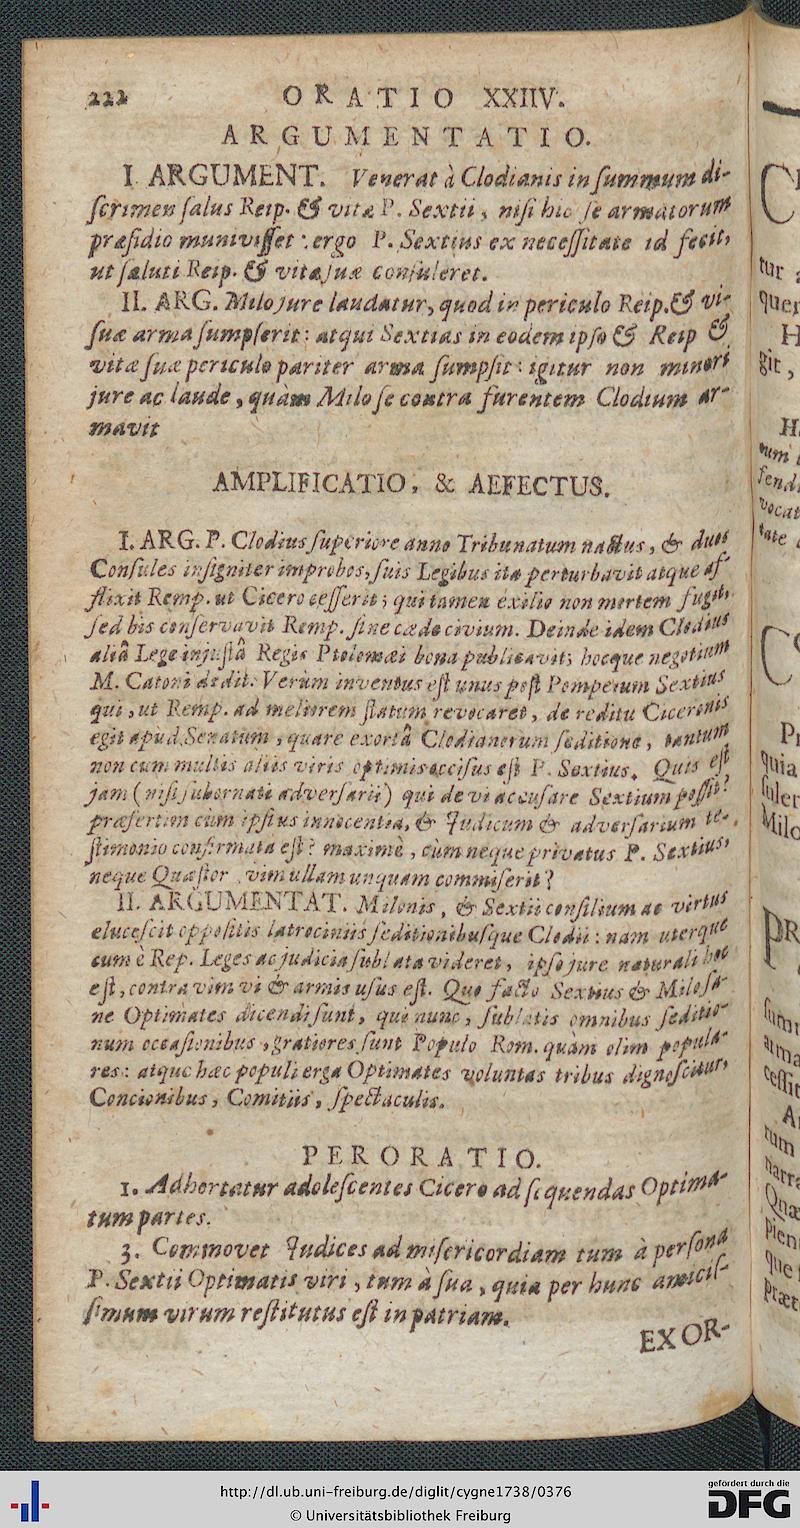 222 ORATIO XXIIV.
ARGUMENTATIO.
I ARGUMENT. Venerat à Clodianis in ſummum di-
ſcrimen ſalus Reip. & vitæ P. Sextii, niſi hic ſe armatorum
præſidio muniviſſet : ergo P. Sextius ex neceſſitate id fecit,
ut ſaluti Reip. & vitæ ſuæ conſuleret.
II. ARG. Milo jure laudatur, quod in periculo Reip. & vi-
ſuæ arma ſumpſerit : atqui Sextias in eodem ipſo & Reip &
vitæ ſuæ periculo pariter arma ſumpſit : igitur non minori
jure ac laude, quàm Milo ſe contra furentem Clodium ar-
mavit
AMPLIFICATIO, & AEFECTUS.
I. ARG. P. Clodius ſuperiore anno Tribunatum nactus, & duos
Conſules inſigniter improbos, ſuis Legibus ita perturbavit atque af-
flixit Remp. ut Cicero ceſſerit ; qui tamen exilio non mortem fugit,
ſed bis conſervavit Remp. ſine cæde civium. Deinde idem Clodius
aliâ Lege injuſtâ Regis Ptolomæi bona publicavit; hocque negotium
M. Catoni dedit. Verùm inventus eſt unus poſt Pompeium Sextius
qui, ut Remp. ad meliorem ſtatum revocaret, de reditu Ciceronis
egit apud Senatum, quare exortâ Clodianorum ſeditione, tantum
non cum multis aliis viris optimis occiſus eſt P. Sextius. Quis eſt
jam (niſi ſubornati adverſarii) qui de vi accuſare Sextium poſſit?
præſertim cum ipſius innocentia, & Judicum & adverſarium te-
ſtimonio confirmata eſt? maximè, cùm neque privatus P. Sextius,
neque Quæſtor, vim ullam unquam commiſerit?
II. ARGUMENTAT. Milonis, & Sextii conſilium ac virtus
eluceſcit oppoſitis latrociniis ſeditionibuſque Clodii : nam uterque
cum è Rep. Leges ac judicia ſublata videret, ipſo jure naturali hoc
eſt, contra vim vi & armis uſus eſt. Quo facto Sextius & Milo ſa-
ne Optimates dicendi ſunt, qui nunc, ſublatis omnibus ſeditio-
num occaſionibus, gratiores ſunt Populo Rom. quàm olim popula-
res : atque hæc populi erga Optimates voluntas tribus dignoſcitur,
Concionibus, Comitiis, ſpectaculis.
PERORATIO.
1. Adhortatur adoleſcentes Cicero ad ſequendas Optima-
tum partes.
3. Commovet Judices ad miſericordiam tum à perſona
P. Sextii Optimatis viri, tum à ſua, quia per hunc amiciſ-
ſimum virum reſtitutus eſt in patriam.
EXOR-
http://dl.ub.uni-freiburg.de/diglit/cygne1738/0376
© Universitätsbibliothek Freiburg
gefördert durch die
DFG